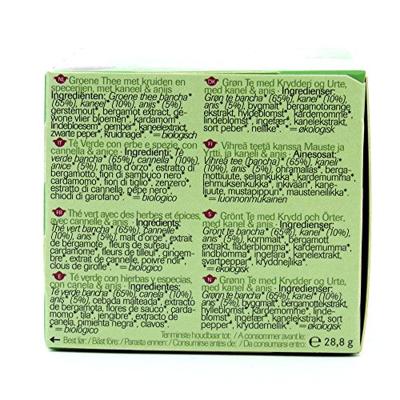 NL Groene Thee met kruiden en
specerijen, met kaneel & anijs
Ingrediënten: Groene thee bancha*
(65%), kaneel* (10%), anijs* (5%),
gerstemout*, bergamot extract, gember*,
lindebloesem*, kaneelextrakt,
zwarte peper*, kruidnagel*.
*=biologisch
IT Té verde con erbe e spezie, con
cannella & anice - Ingredienti: Té
verde bancha* (65%), cannella* (10%),
anice* (5%), malto d'orzo*, estratto di
bergamotto, fiori di sambuco nero*,
cardamomo*, fiori di tiglio*, zenzero*,
estratto di cannella, pepe nero*,
chiodi di garofano*. *=biologico
FR Thé vert avec des herbes et épices,
avec cannelle & anis - Ingrédients:
Thé vert bancha* (65%), cannelle*
(10%), anis* (5%), malt d'orge*, extrait
de bergamote, fleurs de sureau*,
cardamome*, fleurs de tilleul*, gingem-
bre*, extrait de cannelle, poivre noir*,
clous de girofle*. *=biologique
E Té verde con hierbas y especias,
con canela & anis - Ingredientes:
Té verde bancha* (65%), canela* (10%),
anis* (5%), cebada malteada*, extracto
de bergamota, flores de sauco*, carda-
momo*, tila*, jengibre*, extracto de
canela, pimienta negra*, clavos*.
*=biológico
Grøn Te med Krydderi og Urte,
med kanel & anis - Ingredienser:
Grøn te bancha* (65%), kanel* (10%),
anis* (5%), bygmalt*, bergamotørange
ekstrakt, hyldeblomst*, kardemomme*,
lindeblomst*, ingefær*, kanelekstrakt,
sort peber*, nellike*. *=økologisk
Vihreä teetä kanssa Mauste ja
Yrtti, kaneli & anis - Ainesosat:
Vihreä tee bancha* (65%), kaneli* (10%),
anis* (5%), ohramallas*,
kardemumma*,
lehmuksenkukka*, inkivääri*, kane-
liuute, mustapippuri*,
*=luonnonmukainen
S Grönt Te med Krydd och Örter,
med kanel & anis - Ingredienser:
Grönt te bancha* (65%), kanel* (10%),
anis* (5%), kornmalt*, bergamott
extrakt, fläderblomma*, kardemumma*,
lindblomma*, ingefära*, kanelextrakt,
svartpeppar*, kryddnejlika*.
*=ekologisk
N Grønn Te med Krydder og Urte,
med kanel & anis - Ingredienser:
Grønn te bancha* (65%), kanel* (10%),
anis* (5%), byggmalt*, bergamottekstrakt,
hyllebloms*, kardemomme*,
lindeblomst*, ingefær*, kanelekstrakt, sort
pepper*, kryddernellik*. *=økologisk
Tenminste houdbaar tot:/ A consommer avant le:
← Best før:/ Bäst före:/ Parasta ennen:/ Consumirse antes de:/ Da consumarsi entro: ℮ 28,8 g